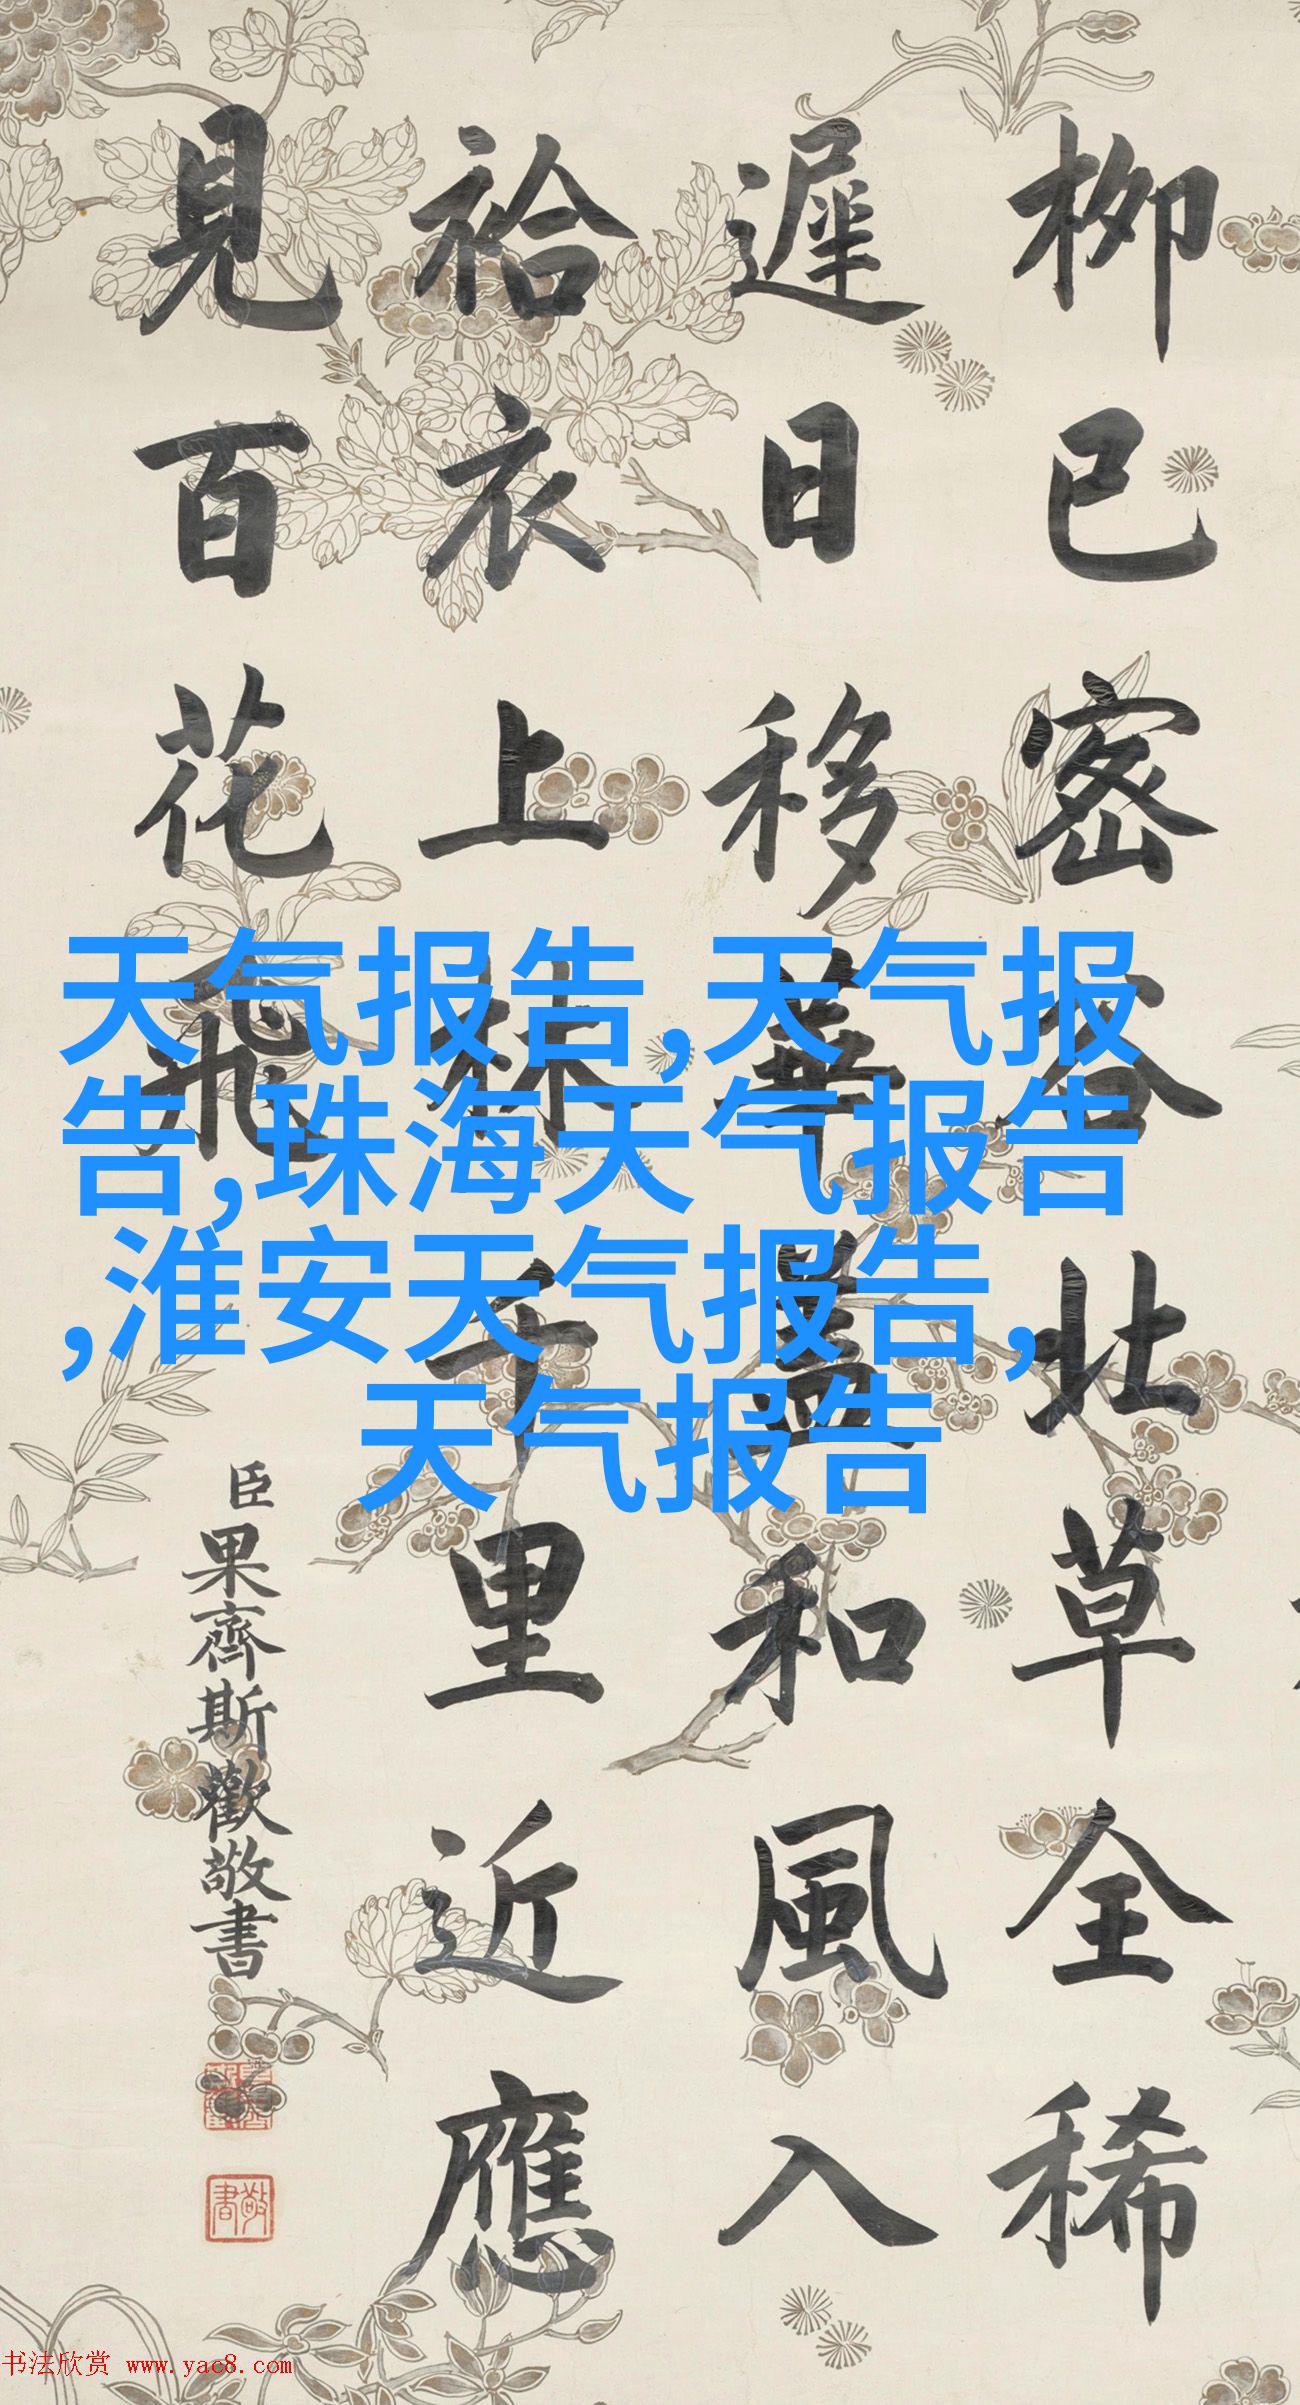 柳已密容北草全稀
遲日移華蓋和風入
袷衣上林千里近應
見百花飛
臣果齊斯歡敬書
敬書
天气报告,天气报
告,珠海天气报告
,淮安天气报告,
天气报告
书法欣赏 www.yac8.com